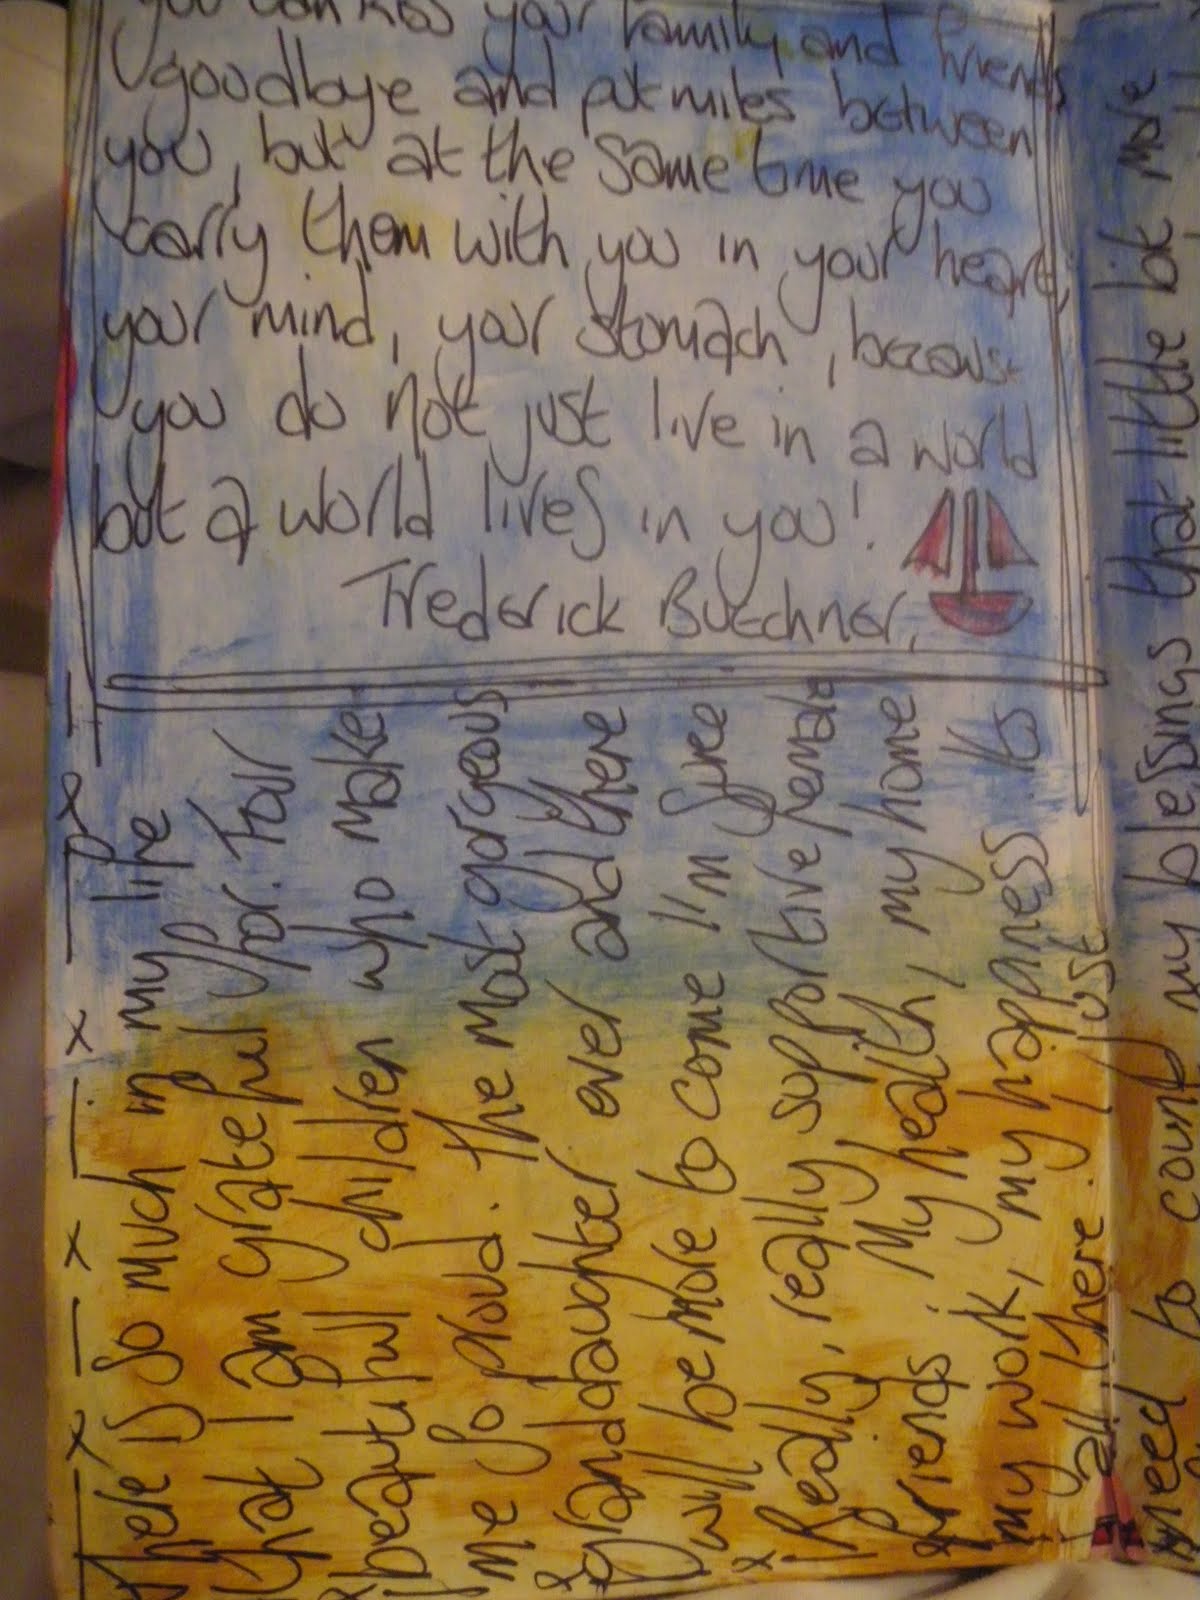 you can kiss your family and friends
goodbye and put miles between
you, but at the same time you
carry them with you in your heart,
your mind, your stomach, because
you do not just live in a world
but a world lives in you!
Frederick Buechner.
There is so much in my life
that I am grateful for. Four
beautiful children who make
me so proud. The most gorgeous
granddaughter ever and there
will be more to come I'm sure
Really, really supportive female
friends. My health, my home
my work, my happiness. Its
all there. I just
need to count my blessings that little bit more